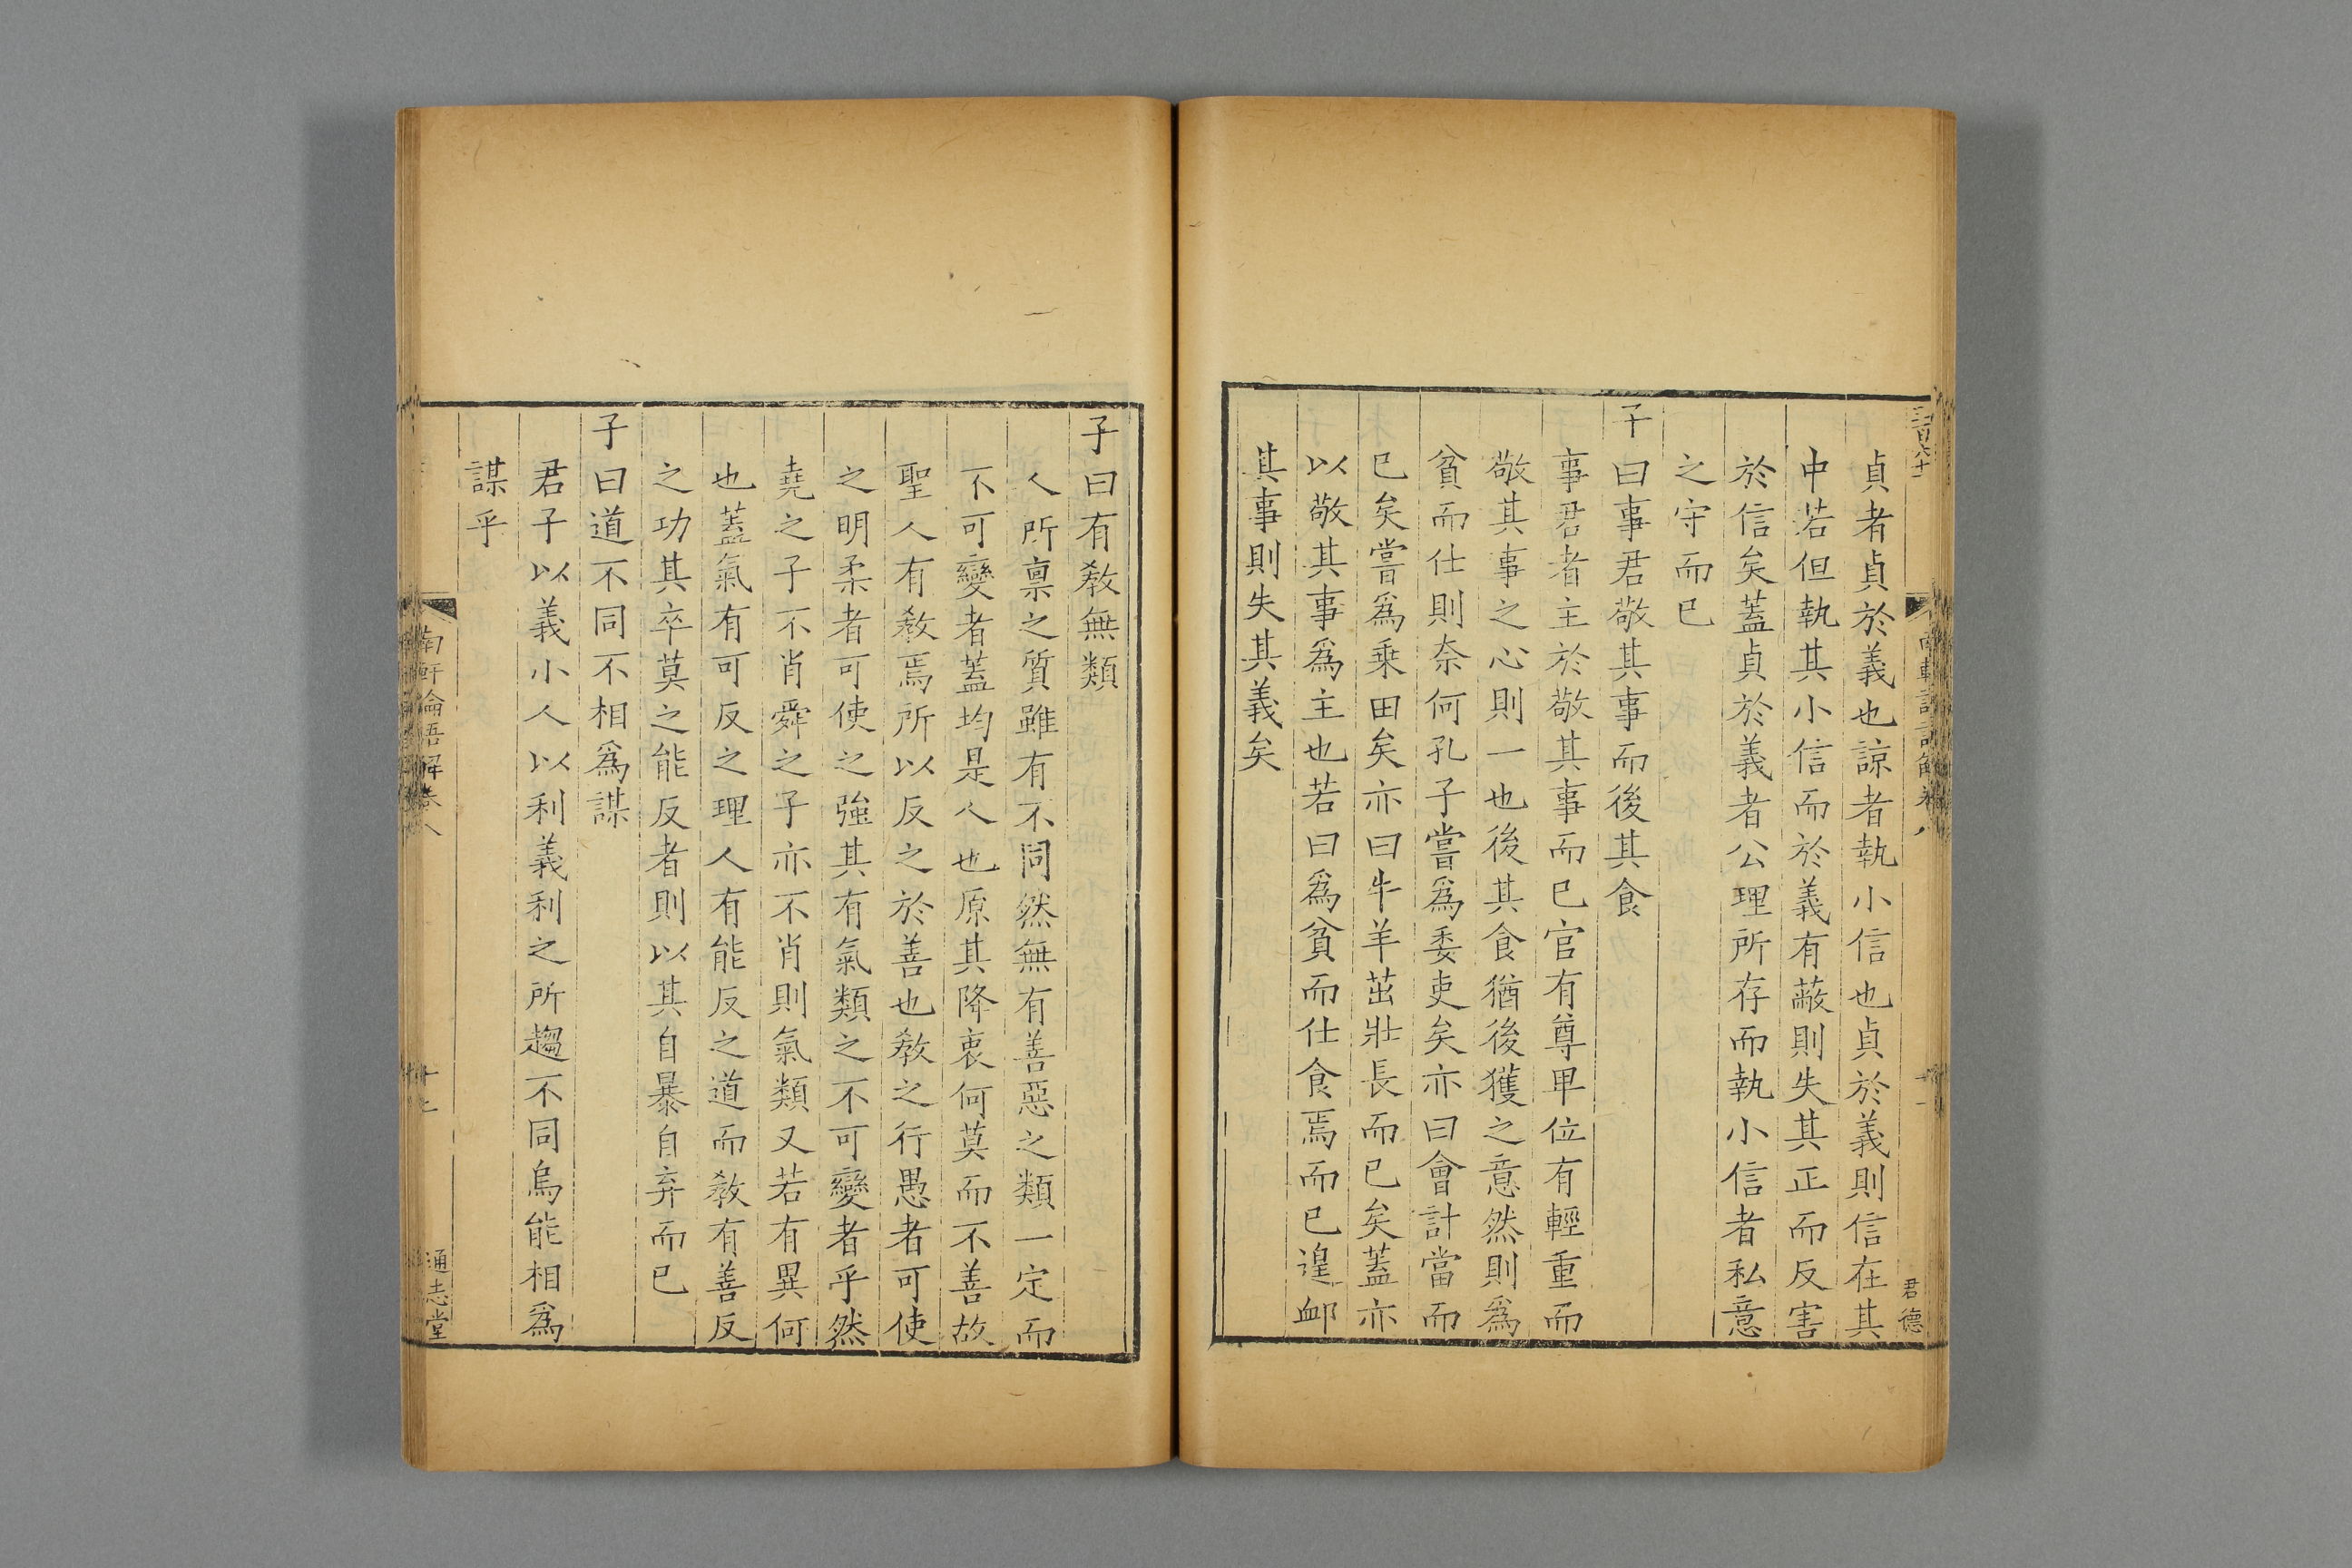 貞者貞於義也諒者執小信也貞於義則信在其
中若但執其小信而於義有蔽則失其正而反害
於信矣蓋貞於義者公理所存而執小信者私意
之守而已
子曰事君敬其事而後其食
事君者主於敬其事而已官有尊卑位有輕重而
敬其事之心則一也後其食猶後獲之意然則為
貧而仕則奈何孔子嘗為委吏矣亦曰會計當而
已矣嘗為乗田矣亦曰牛羊茁壯長而已矣蓋亦
以敬其事為主也若曰為貧而仕食焉而已遑邮
其事則失其義矣
君德
子曰有敎無類
人所稟之質雖有不同然無有善惡之類一定而
不可變者蓋均是人也原其降衷何莫而不善故
聖人有敎焉所以反之於善也敎之行愚者可使
之明柔者可使之強其有氣類之不可變者乎然
堯之子不肖舜之子亦不肖則氣類又若有異何
也蓋氣有可反之理人有能反之道而敎有善反
之功其卒莫之能反者則以其自暴自弃而已
子曰道不同不相為謀
君子以義小人以利義利之所趨不同烏能相為
謀乎
南軒論語解卷八
通志堂